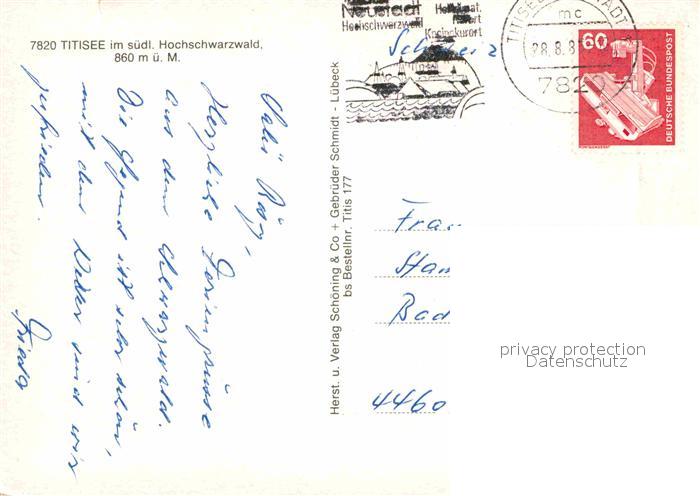 7820 TITISEE im südl. Hochschwarzwald,
860 m ü. M.
Herzliche Feriengrüsse
aus dem Schwarzwald.
Die Gegend ist sehr schön,
mit dem Wetter sind wir
zufrieden.
Herst. u. Verlag Schöning & Co + Gebrüder Schmidt · Lübeck
bs Bestellnr. Titis 177
Neustadt
Hochschwarzwald
Kneippkurort
mc
28.8.8
7820
60
DEUTSCHE BUNDESPOST
Schweiz
Frau
Bad
4460
privacy protection
Datenschutz